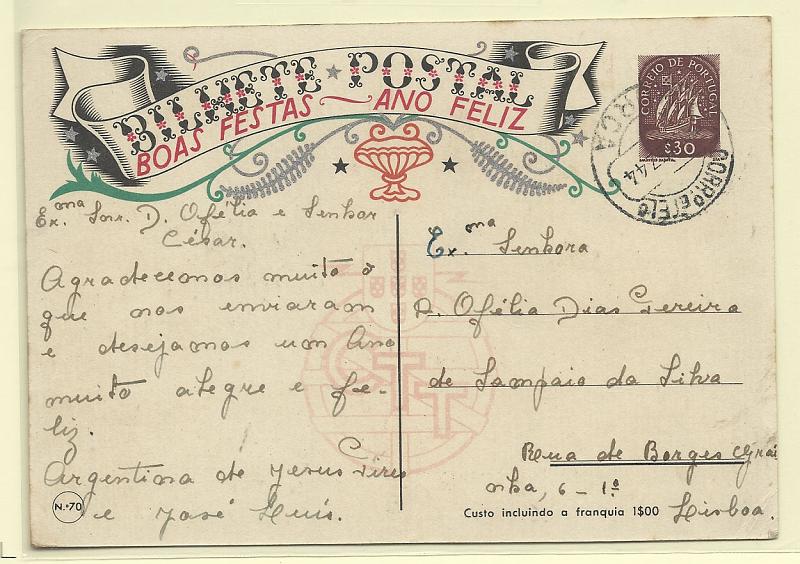 BILHETE POSTAL
BOAS FESTAS ~ ANO FELIZ
CORREIO DE PORTUGAL
$30
44
CORR.º E TELG
Ex.ma Snr. D. Ofélia e Senhor
César.
Agradecemos muito o
que nos enviaram
e desejamos um Ano
muito alegre e fe-
liz.
Argentina de Jesus Pires
e José Luís.
N.º 70
CTT
Ex.ma Senhora
D. Ofélia Dias Pereira
de Sampaio da Silva
Rua de Borges Grai
nha, 6 - 1º
Lisboa.
Custo incluindo a franquia 1$00